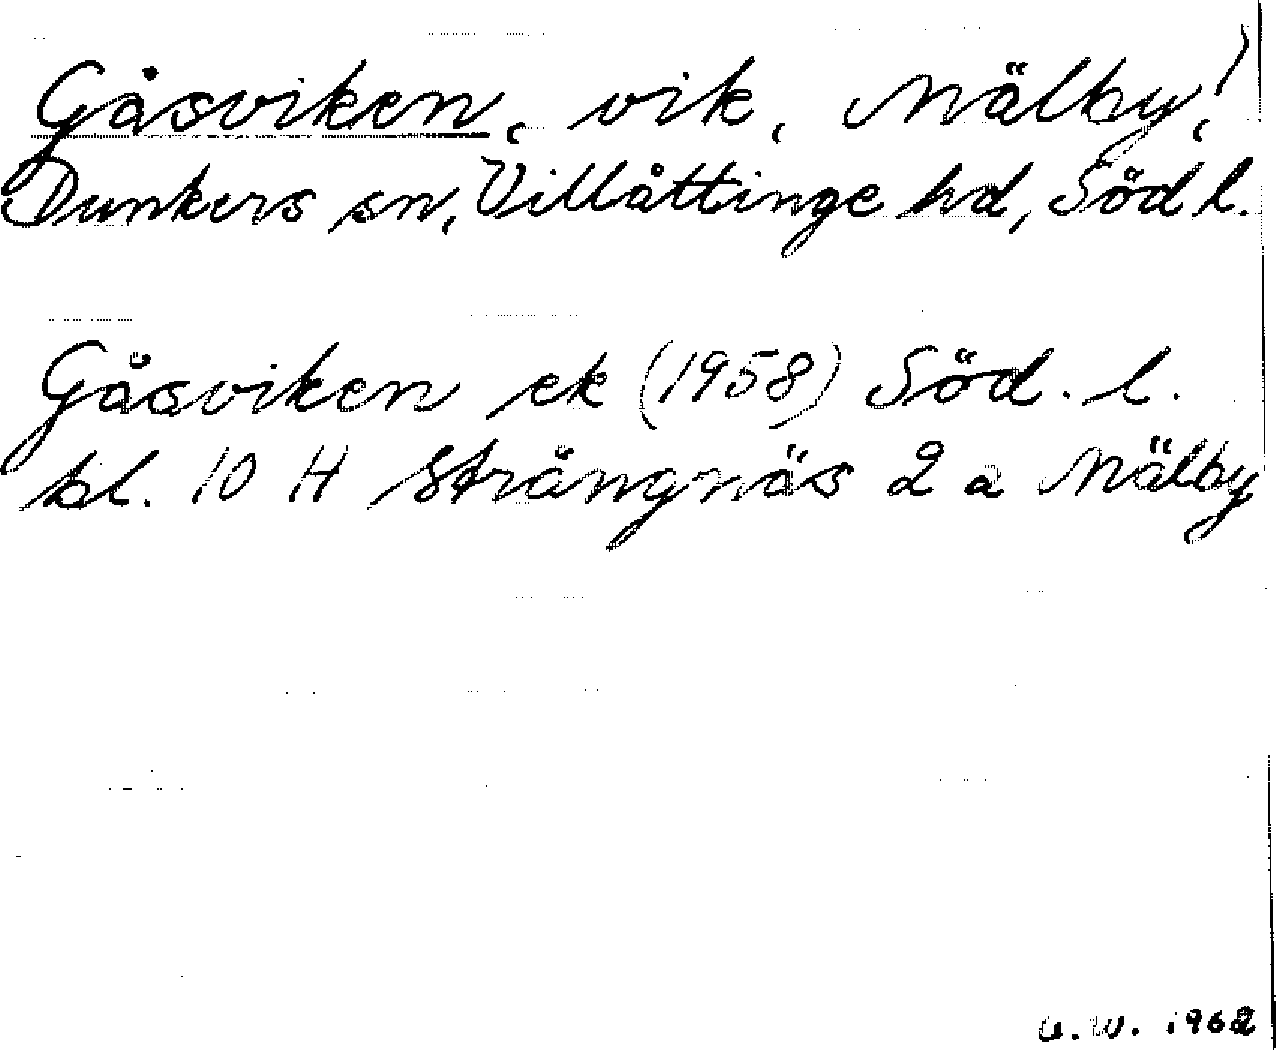 Gåsviken, vik, Mälby!,
Dunkers sn, Villåttinge hd, Söd l.
Gåsviken ek (1958) Söd. l.
bl. 10 H Strängnäs 2 a Mälby
U.W. 1962